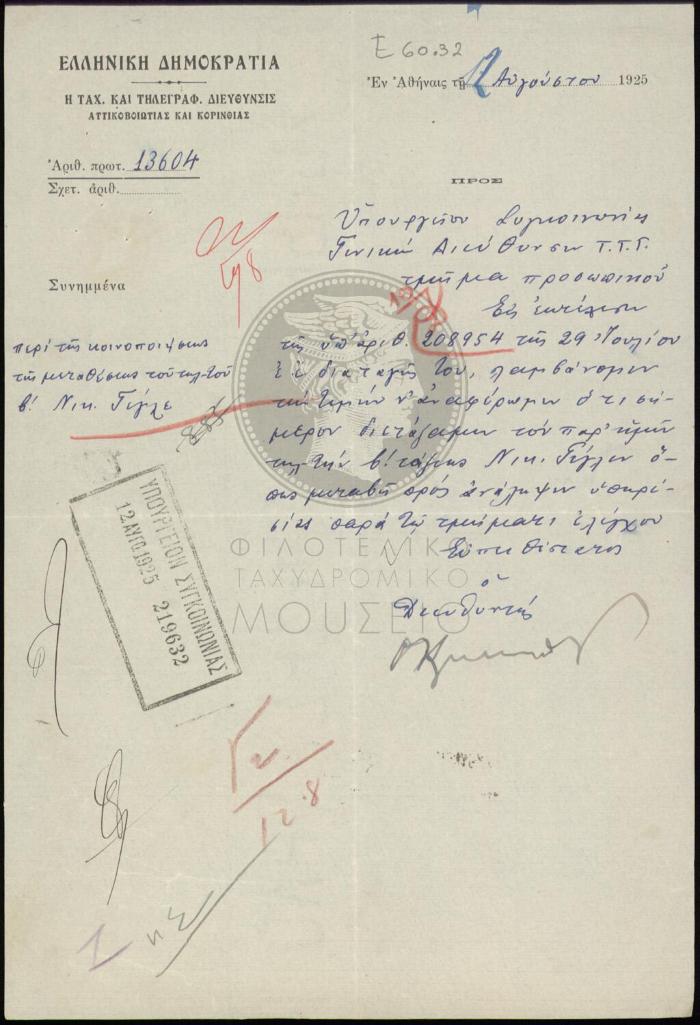 Ε 60.32
ΕΛΛΗΝΙΚΗ ΔΗΜΟΚΡΑΤΙΑ
Η ΤΑΧ. ΚΑΙ ΤΗΛΕΓΡΑΦ. ΔΙΕΥΘΥΝΣΙΣ
ΑΤΤΙΚΟΒΟΙΩΤΙΑΣ ΚΑΙ ΚΟΡΙΝΘΙΑΣ
Ἐν Ἀθήναις τῇ 12 Αὐγούστου 1925
Ἀριθ. πρωτ. 13604
Σχετ. ἀριθ.
Συνημμένα
περὶ τῆς κοινοποιήσεως
τῆς μεταθέσεως τοῦ τηλ-τοῦ
β! Νικ. Γίγλε
ΠΡΟΣ
Ὑπουργεῖον Συγκοινωνίας
Γενικὴν Διεύθυνσιν Τ.Τ.Τ.
τμῆμα προσωπικοῦ
Εἰς ἐκτέλεσιν
τῆς ὑπ' ἀριθ. 208954 τῆς 29 Ἰουλίου
ἐ.ἔ διαταγῆς Του, λαμβάνομεν
τὴν τιμὴν ν' ἀναφέρωμεν ὅτι σή-
μερον διετάξαμεν τὸν παρ' ἡμῖν
τηλ-τὴν β! τάξεως Νικ. Γίγλεν ὅ-
πως μεταβῇ πρὸς ἀνάληψιν ὑπηρε-
σίας παρὰ τῷ τμήματι ἐλέγχου
Εὐπειθέστατος
ὁ
Διευθυντής
ΥΠΟΥΡΓΕΙΟΝ ΣΥΓΚΟΙΝΩΝΙΑΣ
12 ΑΥΓ 1925 219632
ΦΙΛΟΤΕΛΙΚΟ
ΤΑΧΥΔΡΟΜΙΚΟ
ΜΟΥΣΕΙΟ
12.8